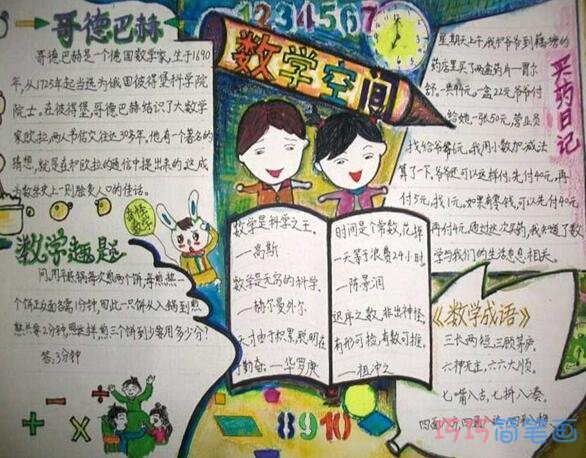 哥德巴赫
哥德巴赫是个德国数学家,生于1690
年,从1725年起当选为俄国彼得堡科学院
院士。在彼得堡,哥德巴赫结识了大数学
家欧拉,两人书信交往达30多年。他有个著名的
猜想,就是在和欧拉的通信中提出来的。这成
为数学史上一则脍炙人口的佳话。
数学趣题
问:用平底锅每次煎两个饼,每煎熟一
个饼正反面各需1分钟,因此一只饼从入锅到煎
熟共要2分钟,照这样,煎三个饼到少要用多少分?
答:3分钟
1234567
数学空间
数学是科学之王。
—高斯
数学是无穷的科学。
—赫尔曼外尔
天才由于积累,聪明在
于勤奋。—华罗庚
时间是个常数,花掉
一天等于浪费24小时。
—陈景润
迟序之数,非出神怪,
有形可检,有数可推。
—祖冲之
8910
买药日记
星期天上午,我和爷爷到
药店里买了两盒药片—胃
舒,一共
给她一张50元,营业员
找给爷爷6元,我用小数加减法
算了一下,爷爷还可以这样付,先付40元,再
付5元,找1元,如果有零钱,可以先付40元,
再付4元。通过这次买药,我知道了数
学与我们的生活息息相关。
《数学成语》
三长两短,三顾茅庐。
六神无主,六六大顺。
七嘴八舌,七拼八凑。
巧巧简笔画